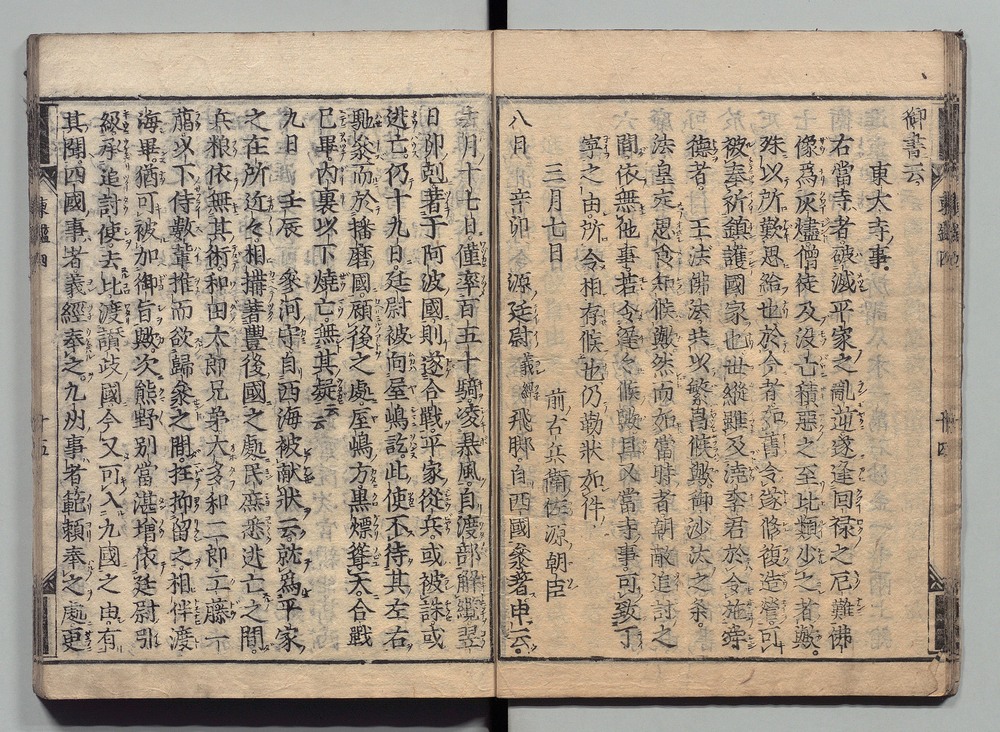 御書云
東大寺事
右當寺者破滅平家之亂逆遂逢回禄之厄難佛
像爲灰燼僧徒及没亡積惡之至比類少之者歟
殊以所歎思給也於今者如舊令遂修復造營可
被奉祈鎮護國家也世縱雖及澆季君於令施
德者王法佛法共以繁昌候歟御沙汰之条
法皇定思食知候歟然而如當時者朝敵追討之
間依無他事若令遲々候歟且又當寺事可致丁
寧之由所令相存候也仍勒狀如件
三月七日 前右兵衛佐源朝臣
八日 辛卯 源廷尉義經飛脚自西國參著申云
去月十七日僅率百五十騎凌暴風自渡部解纜翌
日卯剋著于阿波國則遂合戰平家從兵或被誅或
逃亡仍十九日廷尉被向屋嶋訖此使不待其左右
馳參而於播磨國顧後之處屋嶋方黒煙聳天合戰
已畢内裏以下燒亡無其疑云云
九日 壬辰 參河守自西海被献狀云就爲平家
之在所近々相搆著豊後國之處民庶悉逃亡之間
兵粮依無其術和田太郎兄弟大多和二郎工藤一
﨟以下侍數輩推而欲歸參之間抂抑留之相伴渡
海畢猶可被加御旨歟次熊野別當湛增依廷尉引
級承追討使去比渡讃岐國今又可入九國之由有
其聞四國事者義經奉之九州事者範頼奉之處更
東鑑四
十五
十四